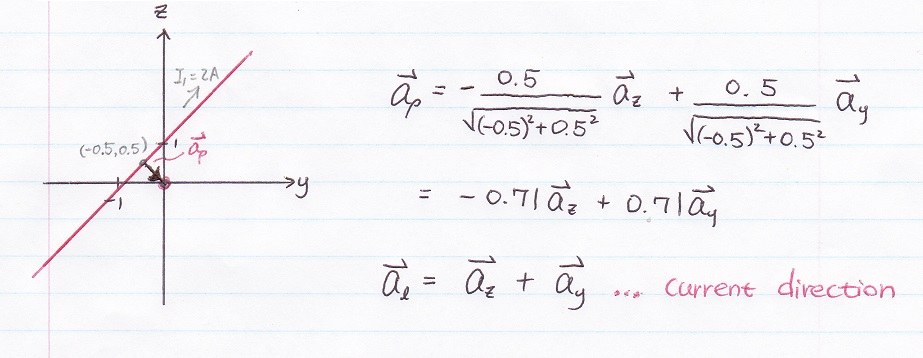 z
I₁=2A
(-0.5,0.5)
1
a⃗ₚ
y
-1
a⃗ₚ = - 0.5/√((-0.5)²+0.5²) a⃗_z + 0.5/√((-0.5)²+0.5²) a⃗_y
= - 0.71 a⃗_z + 0.71 a⃗_y
a⃗_ℓ = a⃗_z + a⃗_y ... current direction